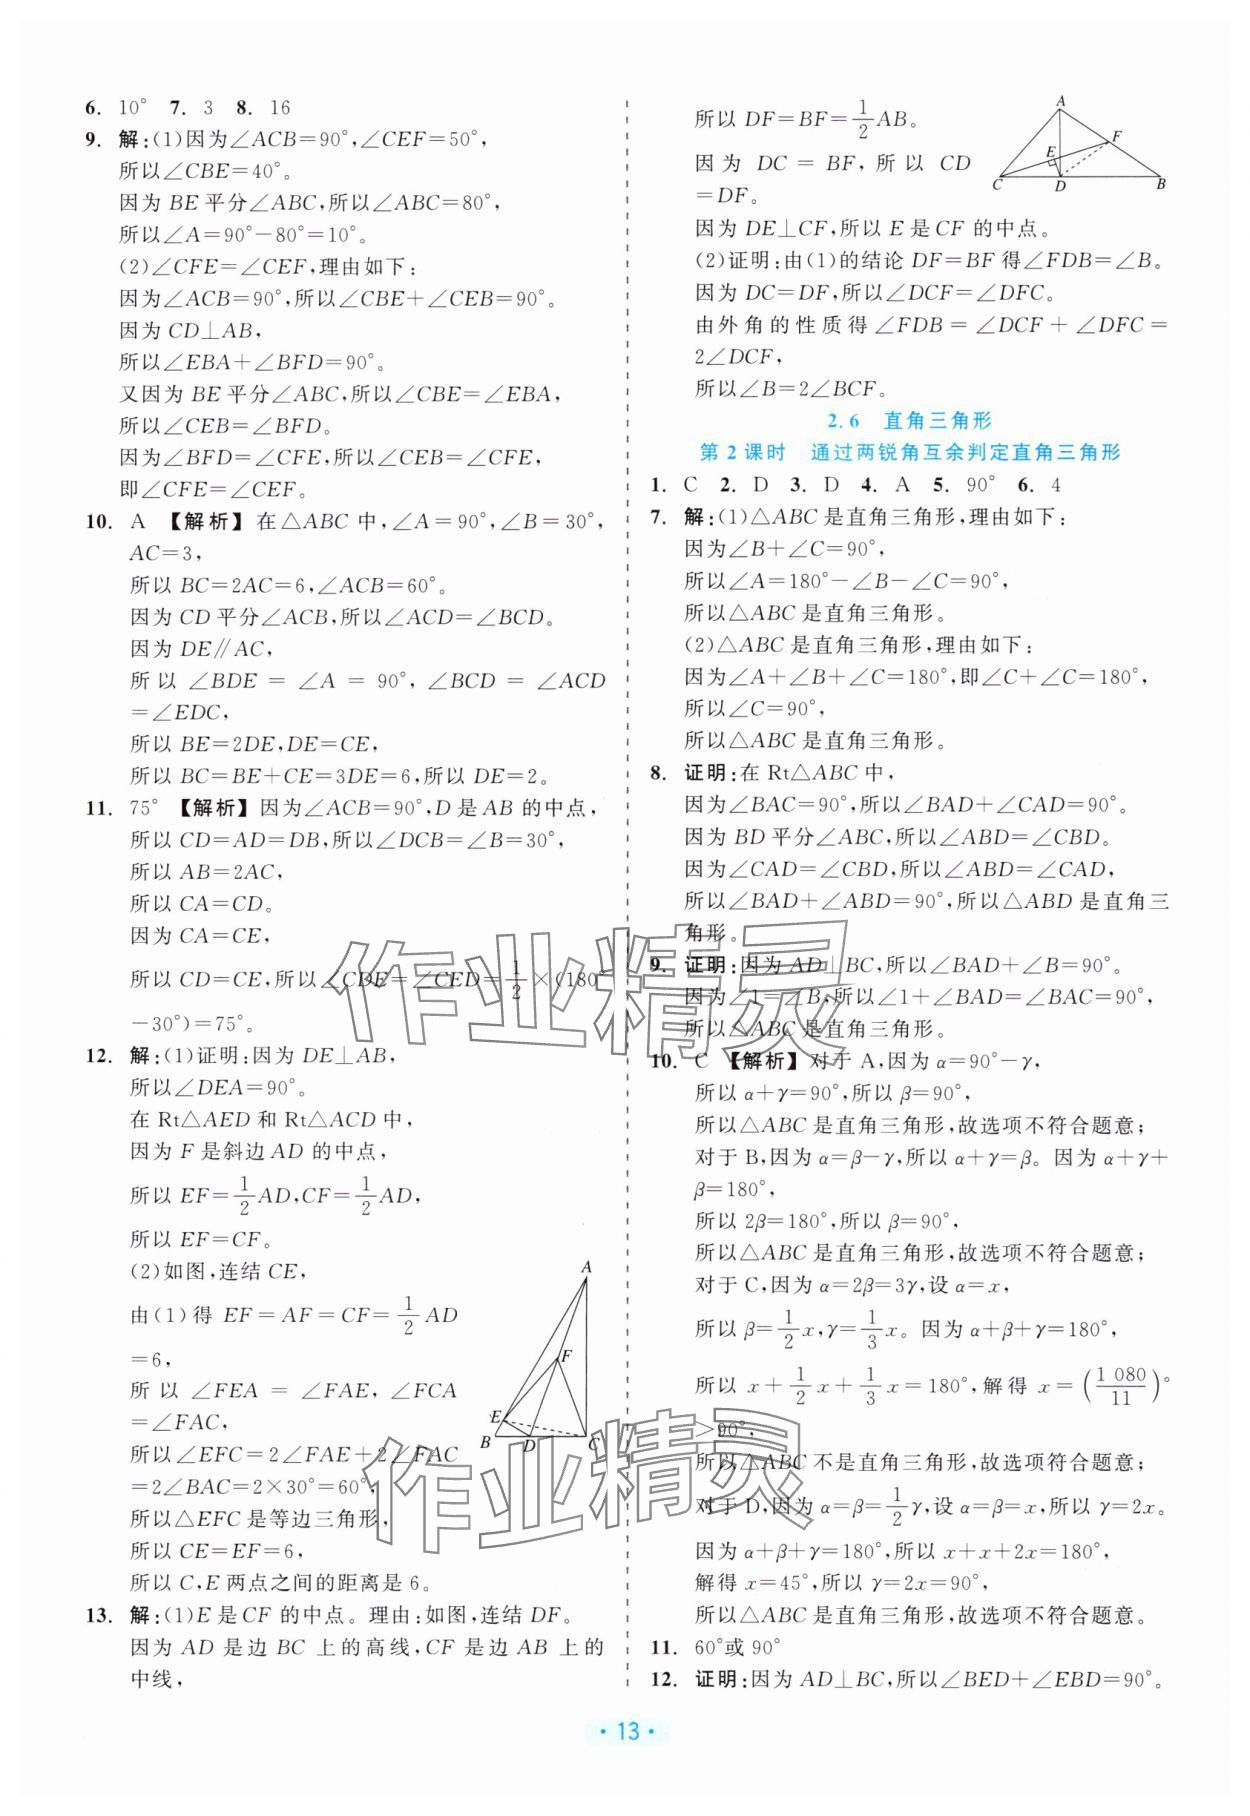 6. 10° 7. 3 8. 16
9. 解:(1)因为∠ACB=90°,∠CEF=50°,
所以∠CBE=40°。
因为 BE 平分∠ABC,所以∠ABC=80°,
所以∠A=90°-80°=10°。
(2)∠CFE=∠CEF,理由如下:
因为∠ACB=90°,所以∠CBE+∠CEB=90°。
因为 CD⊥AB,
所以∠EBA+∠BFD=90°。
又因为 BE 平分∠ABC,所以∠CBE=∠EBA,
所以∠CEB=∠BFD。
因为∠BFD=∠CFE,所以∠CFE=∠CEB,
即∠CFE=∠CEF。
10. A 【解析】在△ABC 中,∠A=90°,∠B=30°,
AC=3,
所以 BC=2AC=6,∠ACB=60°。
因为 CD 平分∠ACB,所以∠ACD=∠BCD。
因为 DE∥AC,
所以 ∠BDE = ∠A = 90°, ∠BCD = ∠ACD
=∠EDC,
所以 BE=2DE,DE=CE,
所以 BC=BE+CE=3DE=6,所以 DE=2。
11. 75° 【解析】因为∠ACB=90°,D 是 AB 的中点,
所以 CD=AD=DB,所以∠DCB=∠B=30°,
所以 AB=2AC,
所以 CA=CD。
因为 CA=CE,
所以 CD=CE,所以∠CDE=∠CED=1/2×(180°
-30°)=75°。
12. 解:(1)证明:因为 DE⊥AB,
所以∠DEA=90°。
在 Rt△AED 和 Rt△ACD 中,
因为 F 是斜边 AD 的中点,
所以 EF=1/2AD,CF=1/2AD,
所以 EF=CF。
(2)如图,连结 CE,
由(1)得 EF=AF=CF=1/2AD
=6,
所以 ∠FEA = ∠FAE, ∠FCA
=∠FAC,
所以∠EFC=2∠FAE+2∠FAC
=2∠BAC=2×30°=60°,
所以△EFC 是等边三角形,
所以 CE=EF=6,
所以 C,E 两点之间的距离是 6。
A
F
E
B
D
C
13. 解:(1)E 是 CF 的中点。理由:如图,连结 DF。
因为 AD 是边 BC 上的高线,CF 是边 AB 上的
中线,
所以 DF=BF=1/2AB。
因为 DC = BF, 所以 CD
=DF。
A
F
E
C
D
B
因为 DE⊥CF,所以 E 是 CF 的中点。
(2)证明:由(1)的结论 DF=BF 得∠FDB=∠B。
因为 DC=DF,所以∠DCF=∠DFC。
由外角的性质得 ∠FDB = ∠DCF + ∠DFC =
2∠DCF,
所以∠B=2∠BCF。
2.6 直角三角形
第 2 课时 通过两锐角互余判定直角三角形
1. C 2. D 3. D 4. A 5. 90° 6. 4
7. 解:(1)△ABC 是直角三角形,理由如下:
因为∠B+∠C=90°,
所以∠A=180°-∠B-∠C=90°,
所以△ABC 是直角三角形。
(2)△ABC 是直角三角形,理由如下:
因为∠A+∠B+∠C=180°,即∠C+∠C=180°,
所以∠C=90°,
所以△ABC 是直角三角形。
8. 证明:在 Rt△ABC 中,
因为∠BAC=90°,所以∠BAD+∠CAD=90°。
因为 BD 平分∠ABC,所以∠ABD=∠CBD。
因为∠CAD=∠CBD,所以∠ABD=∠CAD,
所以∠BAD+∠ABD=90°,所以△ABD 是直角三
角形。
9. 证明:因为 AD⊥BC,所以∠BAD+∠B=90°。
因为∠1=∠B,所以∠1+∠BAD=∠BAC=90°,
所以△ABC 是直角三角形。
10. C 【解析】对于 A,因为 α=90°-γ,
所以 α+γ=90°,所以 β=90°,
所以△ABC 是直角三角形,故选项不符合题意;
对于 B,因为 α=β-γ,所以 α+γ=β。因为 α+γ+
β=180°,
所以 2β=180°,所以 β=90°,
所以△ABC 是直角三角形,故选项不符合题意;
对于 C,因为 α=2β=3γ,设 α=x,
所以 β=1/2x,γ=1/3x。因为 α+β+γ=180°,
所以 x+1/2x+1/3x=180°,解得 x=(1 080/11)°
>90°,
所以△ABC 不是直角三角形,故选项符合题意;
对于 D,因为 α=β=1/2γ,设 α=β=x,所以 γ=2x。
因为 α+β+γ=180°,所以 x+x+2x=180°,
解得 x=45°,所以 γ=2x=90°,
所以△ABC 是直角三角形,故选项不符合题意。
11. 60°或 90°
12. 证明:因为 AD⊥BC,所以∠BED+∠EBD=90°。
作业精灵
作业精灵
· 13 ·